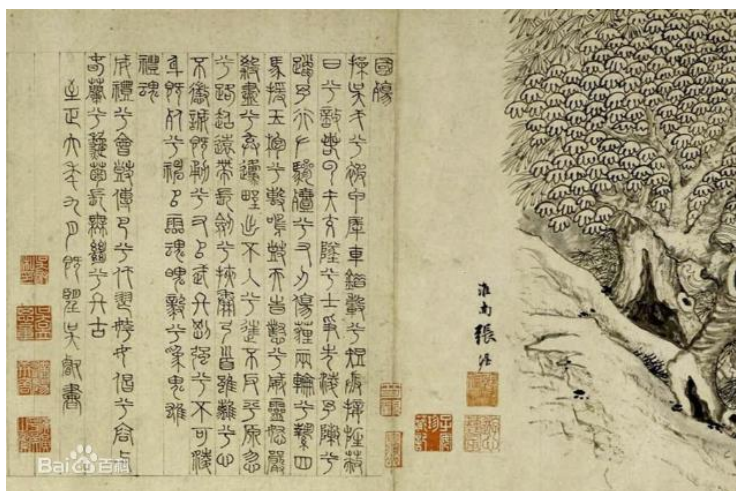 淮南張渥
國殤
操吳戈兮被甲犀車錯轂兮短兵接旌蔽
日兮敵若雲矢交墜兮士爭先凌余陣兮
躐余行左驂殪兮右刃傷霾兩輪兮縶四
馬援玉枹兮擊鳴鼓天時懟兮威靈怒嚴
殺盡兮棄原壄出不入兮往不反平原忽
兮路超遠帶長劍兮挾秦弓首雖離兮心
不懲誠既勇兮又以武終剛強兮不可凌
身既死兮神以靈魂魄毅兮為鬼雄
禮魂
成禮兮會鼓傳芭兮代舞姱女倡兮容與
春蘭兮秋菊長無絕兮終古
至正六年九月既望吳叡書
Bai百科